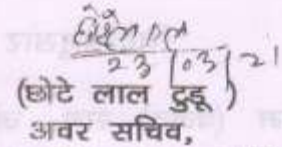 23/03/21
(छोटे लाल टुडू)
अवर सचिव,